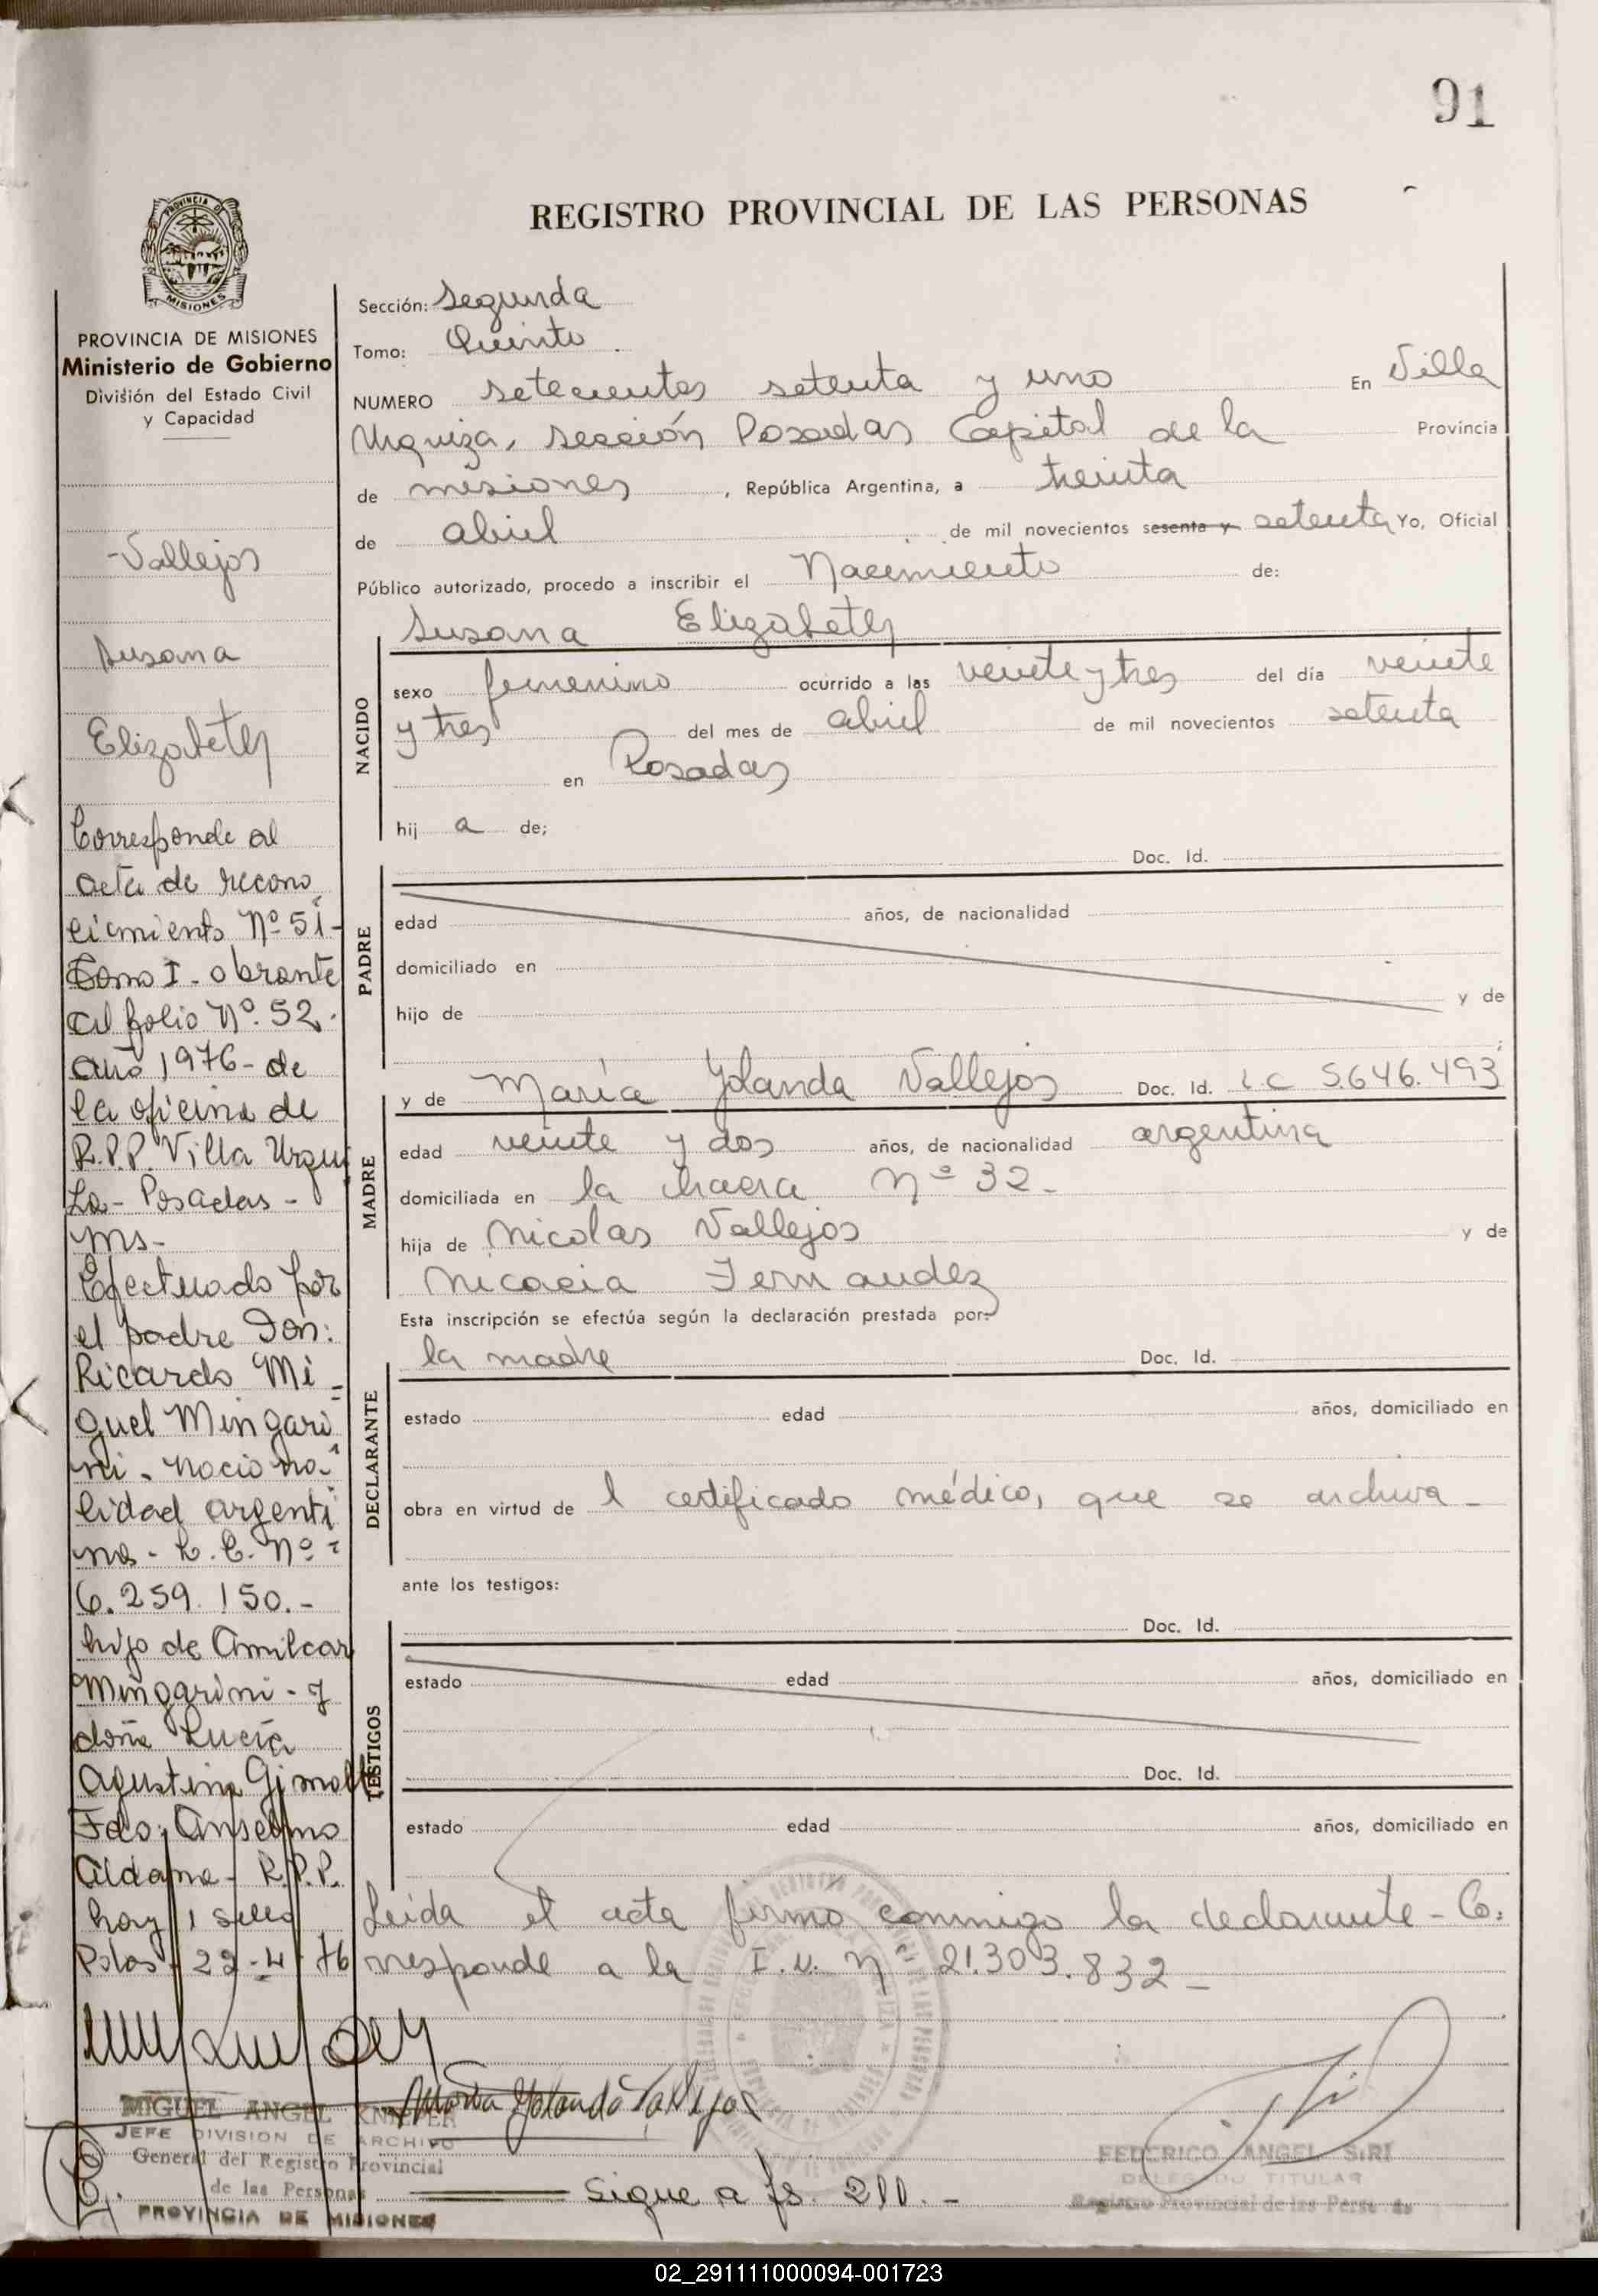 91
REGISTRO PROVINCIAL DE LAS PERSONAS
PROVINCIA DE
MISIONES
PROVINCIA DE MISIONES
Ministerio de Gobierno
División del Estado Civil
y Capacidad
Vallejos
Susana
Elizabeth
Corresponde al
acta de recono
cimiento Nº 51-
Tomo I - obrante
al folio Nº. 52.
año 1976 - de
la oficina de
R.P.P. Villa Urqui
za - Posadas -
Ms-
Efectuado por
el padre Don:
Ricardo Mi=
guel Mingari
ni - naciona-
lidad argenti
na - L.E. Nº
6.259.150.-
hijo de Amilcar
Mingarini - y
doña Lucía
Agustina
Fdo: Anselmo
Aldama - R.P.P.
hay 1 sello
Pdas - 22-4-76
Sección: Segunda
Tomo: Quinto.
NUMERO setecientos setenta y uno En Villa
Urquiza, sección Posadas Capital de la Provincia
de misiones, República Argentina, a treinta
de abril de mil novecientos sesenta y setenta Yo, Oficial
Público autorizado, procedo a inscribir el Nacimiento de:
Susana Elizabeth
NACIDO
sexo femenino ocurrido a las veinte y tres del día veinte
y tres del mes de abril de mil novecientos setenta
en Posadas
hij a de;
Doc. Id.
PADRE
edad años, de nacionalidad
domiciliado en
hijo de y de
y de María Yolanda Vallejos Doc. Id. L.C 5.646.493
MADRE
edad veinte y dos años, de nacionalidad argentina
domiciliada en la chacra Nº 32-
hija de Nicolas Vallejos y de
Nicacia Fernandez
Esta inscripción se efectúa según la declaración prestada por:
la madre Doc. Id.
DECLARANTE
estado edad años, domiciliado en
obra en virtud de l certificado médico, que se archiva -
ante los testigos:
Doc. Id.
TESTIGOS
estado edad años, domiciliado en
Doc. Id.
estado edad años, domiciliado en
Leida el acta firma conmigo la declarante - Co:
rresponde a la I.U. Nº 21.303.832 -
María Yolanda Vallejos
MIGUEL ANGEL KNIEPER
JEFE DIVISION DE ARCHIVO
General del Registro Provincial
de las Personas
PROVINCIA DE MISIONES
FEDERICO ANGEL SIRI
DELEGADO TITULAR
Registro Provincial de las Personas
Sigue a fs. 211. -
02_291111000094-001723